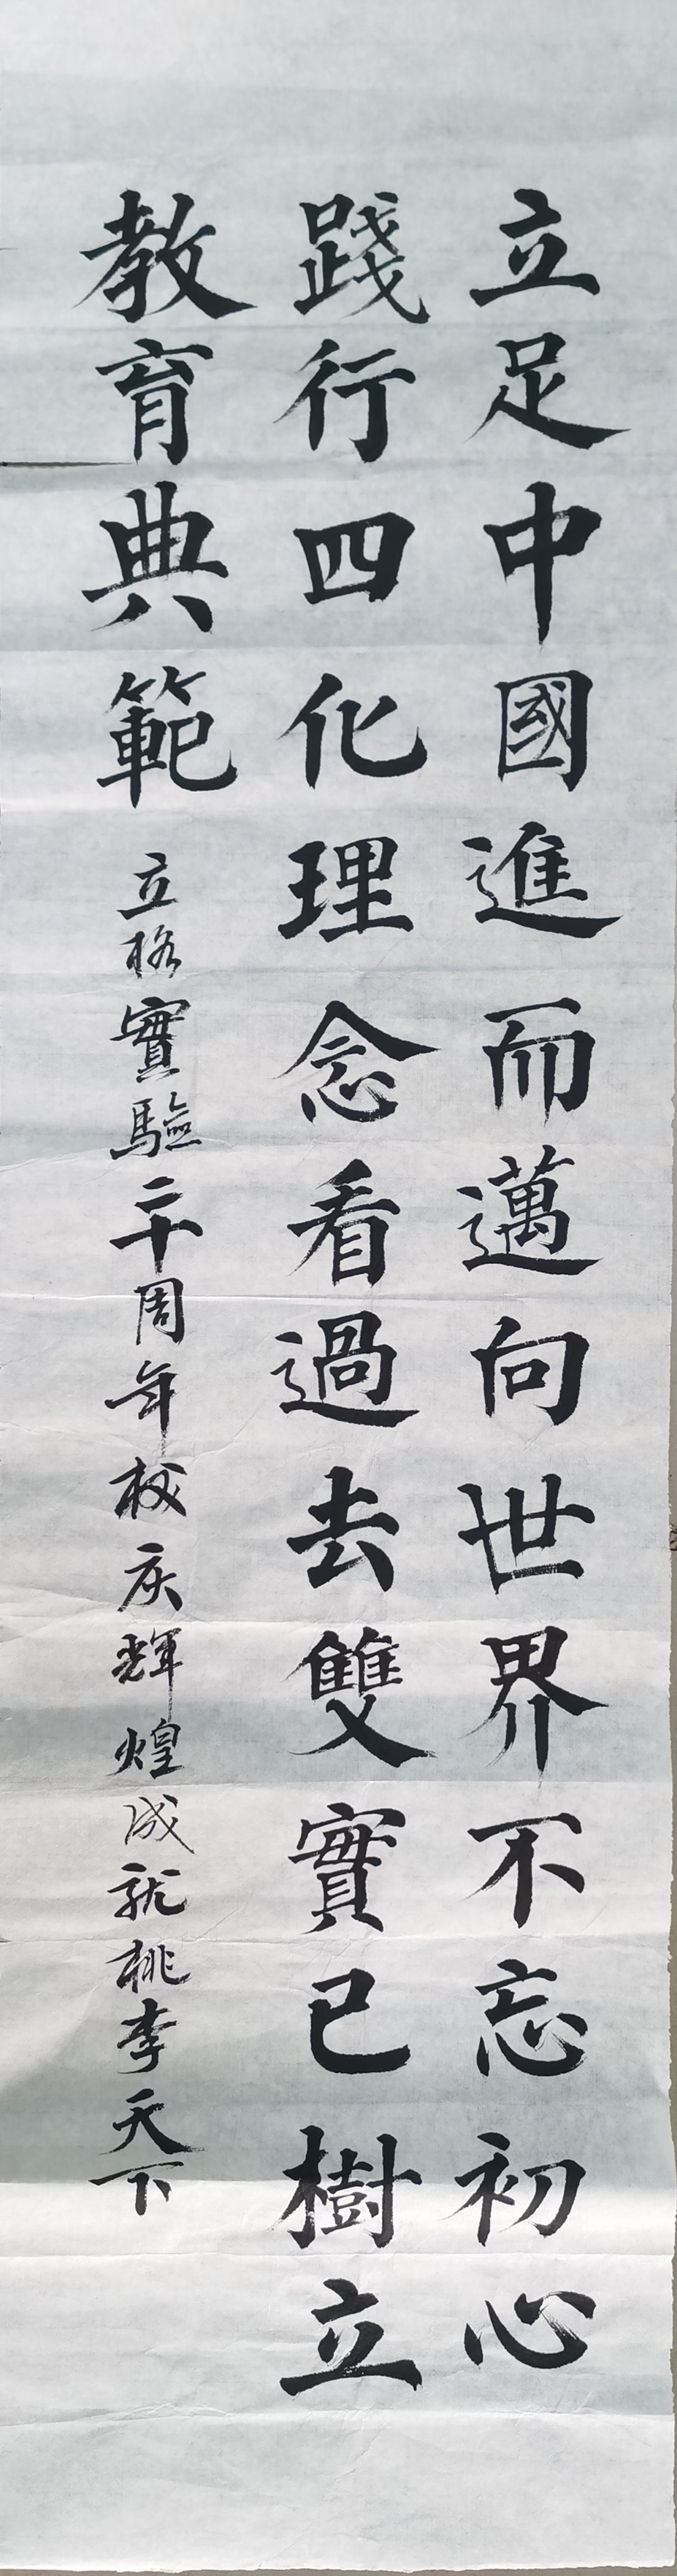 立足中國進而邁向世界不忘初心
踐行四化理念看過去雙實已樹立
教育典範
立格實驗二十周年校庆輝煌成就桃李天下